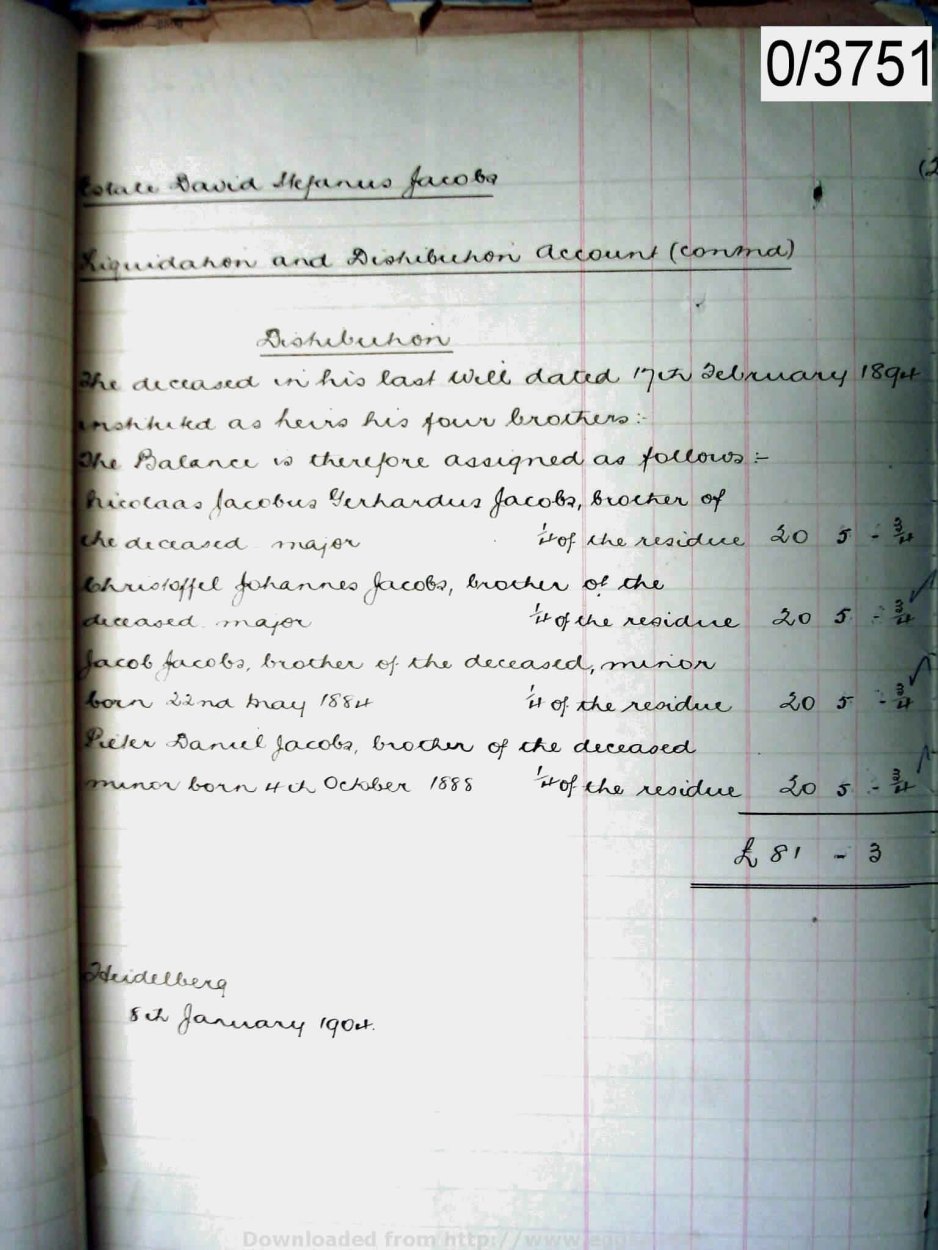 0/3751
(2
Estate David Stefanus Jacobs
Liquidation and Distribution Account (contnd)
Distribution
The deceased in his last Will dated 17th February 1894
instituted as heirs his four brothers:-
The Balance is therefore assigned as follows:-
Nicolaas Jacobus Gerhardus Jacobs, brother of
the deceased major 1/4 of the residue 20 5 - 3/4
Christoffel Johannes Jacobs, brother of the
deceased major 1/4 of the residue 20 5 - 3/4
Jacob Jacobs, brother of the deceased, minor
born 22nd May 1884 1/4 of the residue 20 5 - 3/4
Pieter Daniel Jacobs, brother of the deceased
minor born 4th October 1888 1/4 of the residue 20 5 - 3/4
£ 81 - 3
Heidelberg
8th January 1904.
Downloaded from http://www.egg